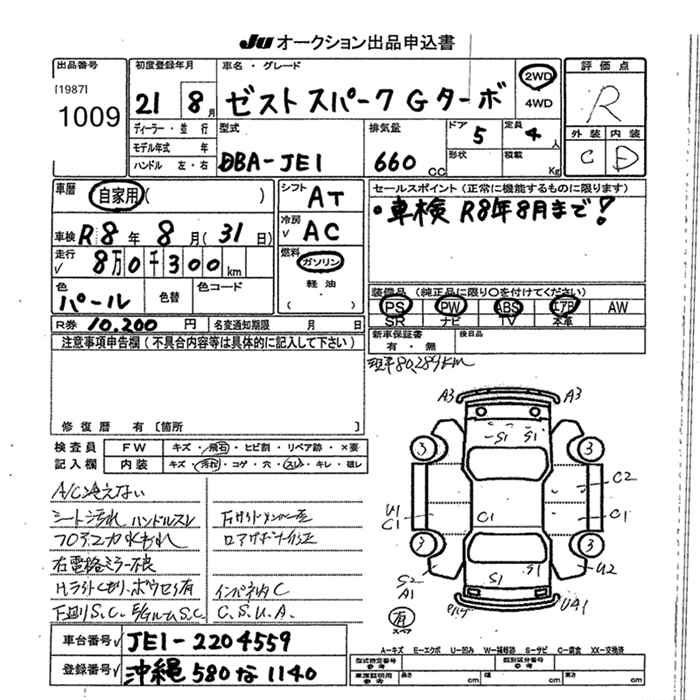 Ju オークション出品申込書
出品番号
[1987]
1009
初度登録年月
21 8月
車名・グレード
ゼスト スパーク Gターボ
2WD
4WD
評価点
R
外装 内装
C D
ディーラー・並行
モデル年式 年
ハンドル 左・右
型式
DBA-JE1
排気量
660 CC
ドア 5
形状
定員 4人
積載 Kg
車歴 自家用( )
車検 R8年8月(31日)
走行 8万0千300km
色 パール
色替
色コード
シフト AT
冷房 AC
燃料 ガソリン
軽油
( )
R券 10,200円
名変通知期限 月 日
セールスポイント(正常に機能するものに限ります)
・車検 R8年8月まで!
装備品(純正品に限り○を付けてください)
PS PW ABS エアB AW
SR ナビ TV 本革
新車保証書
有・無
後日品
注意事項申告欄(不具合内容等は具体的に記入して下さい)
修復歴 有〔箇所 〕
80,289km
検査員
記入欄
FW キズ・飛石・ヒビ割・リペア跡・×要
内装 キズ・汚れ・コゲ・穴・スレ・キレ・破レ
A/C冷えない
シート汚れ ハンドルスレ
右電格ミラー不良
下廻りS.C. E/GルームS.C
インパネ内C
C.S.U.A.
A3 A3
S1 S1
3 3
C2
U1
C1 C1 C1
3 3
S2
A1
S1 S1
U2
UA1
有
スペア
A-キズ E-エクボ U-凹み W-補修跡 S-サビ C-腐食 XX-交換済
車台番号 JE1-2204559
登録番号 沖縄 580 な 1140
型式指定番号
参考
類別区分番号
参考
車庫証明用
参考
長さ cm 幅 cm 高さ cm